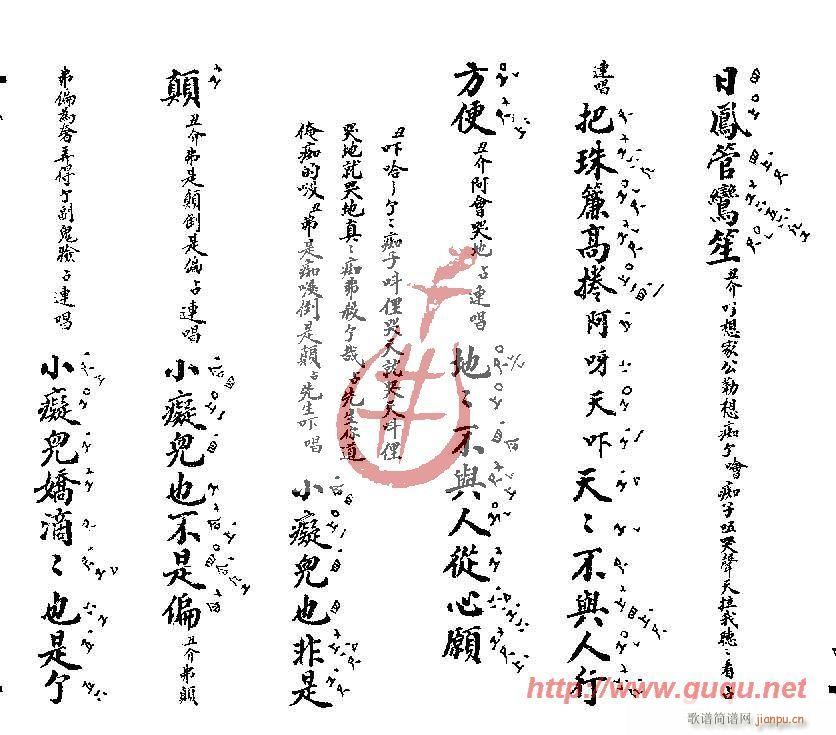 日鳳管鸞笙 丑介 想家公勒想痴 痴子 哭聲天拉我聽〻看 占
連唱 把珠簾高捲阿呀天吓天〻不與人行
方便 丑介 阿會哭地 占連唱 地〻不與人從心願
丑 吓哈〻 个〻痴子呌俚哭天就哭天呌俚
哭地就哭地真〻痴弗殺个哉 占 先生你道
俺痴的嗄 丑 弗是痴嗄倒是顛 占 先生吓 唱 小癡兒也非是
顛 丑介 弗是顛倒是偏 占連唱 小癡兒也不是偏 丑介 弗顛
弗偏為啥弄得个副鬼臉 占連唱 小癡兒嬌滴〻也是个
http://www.guqu.net
歌谱简谱网 jianpu.cn